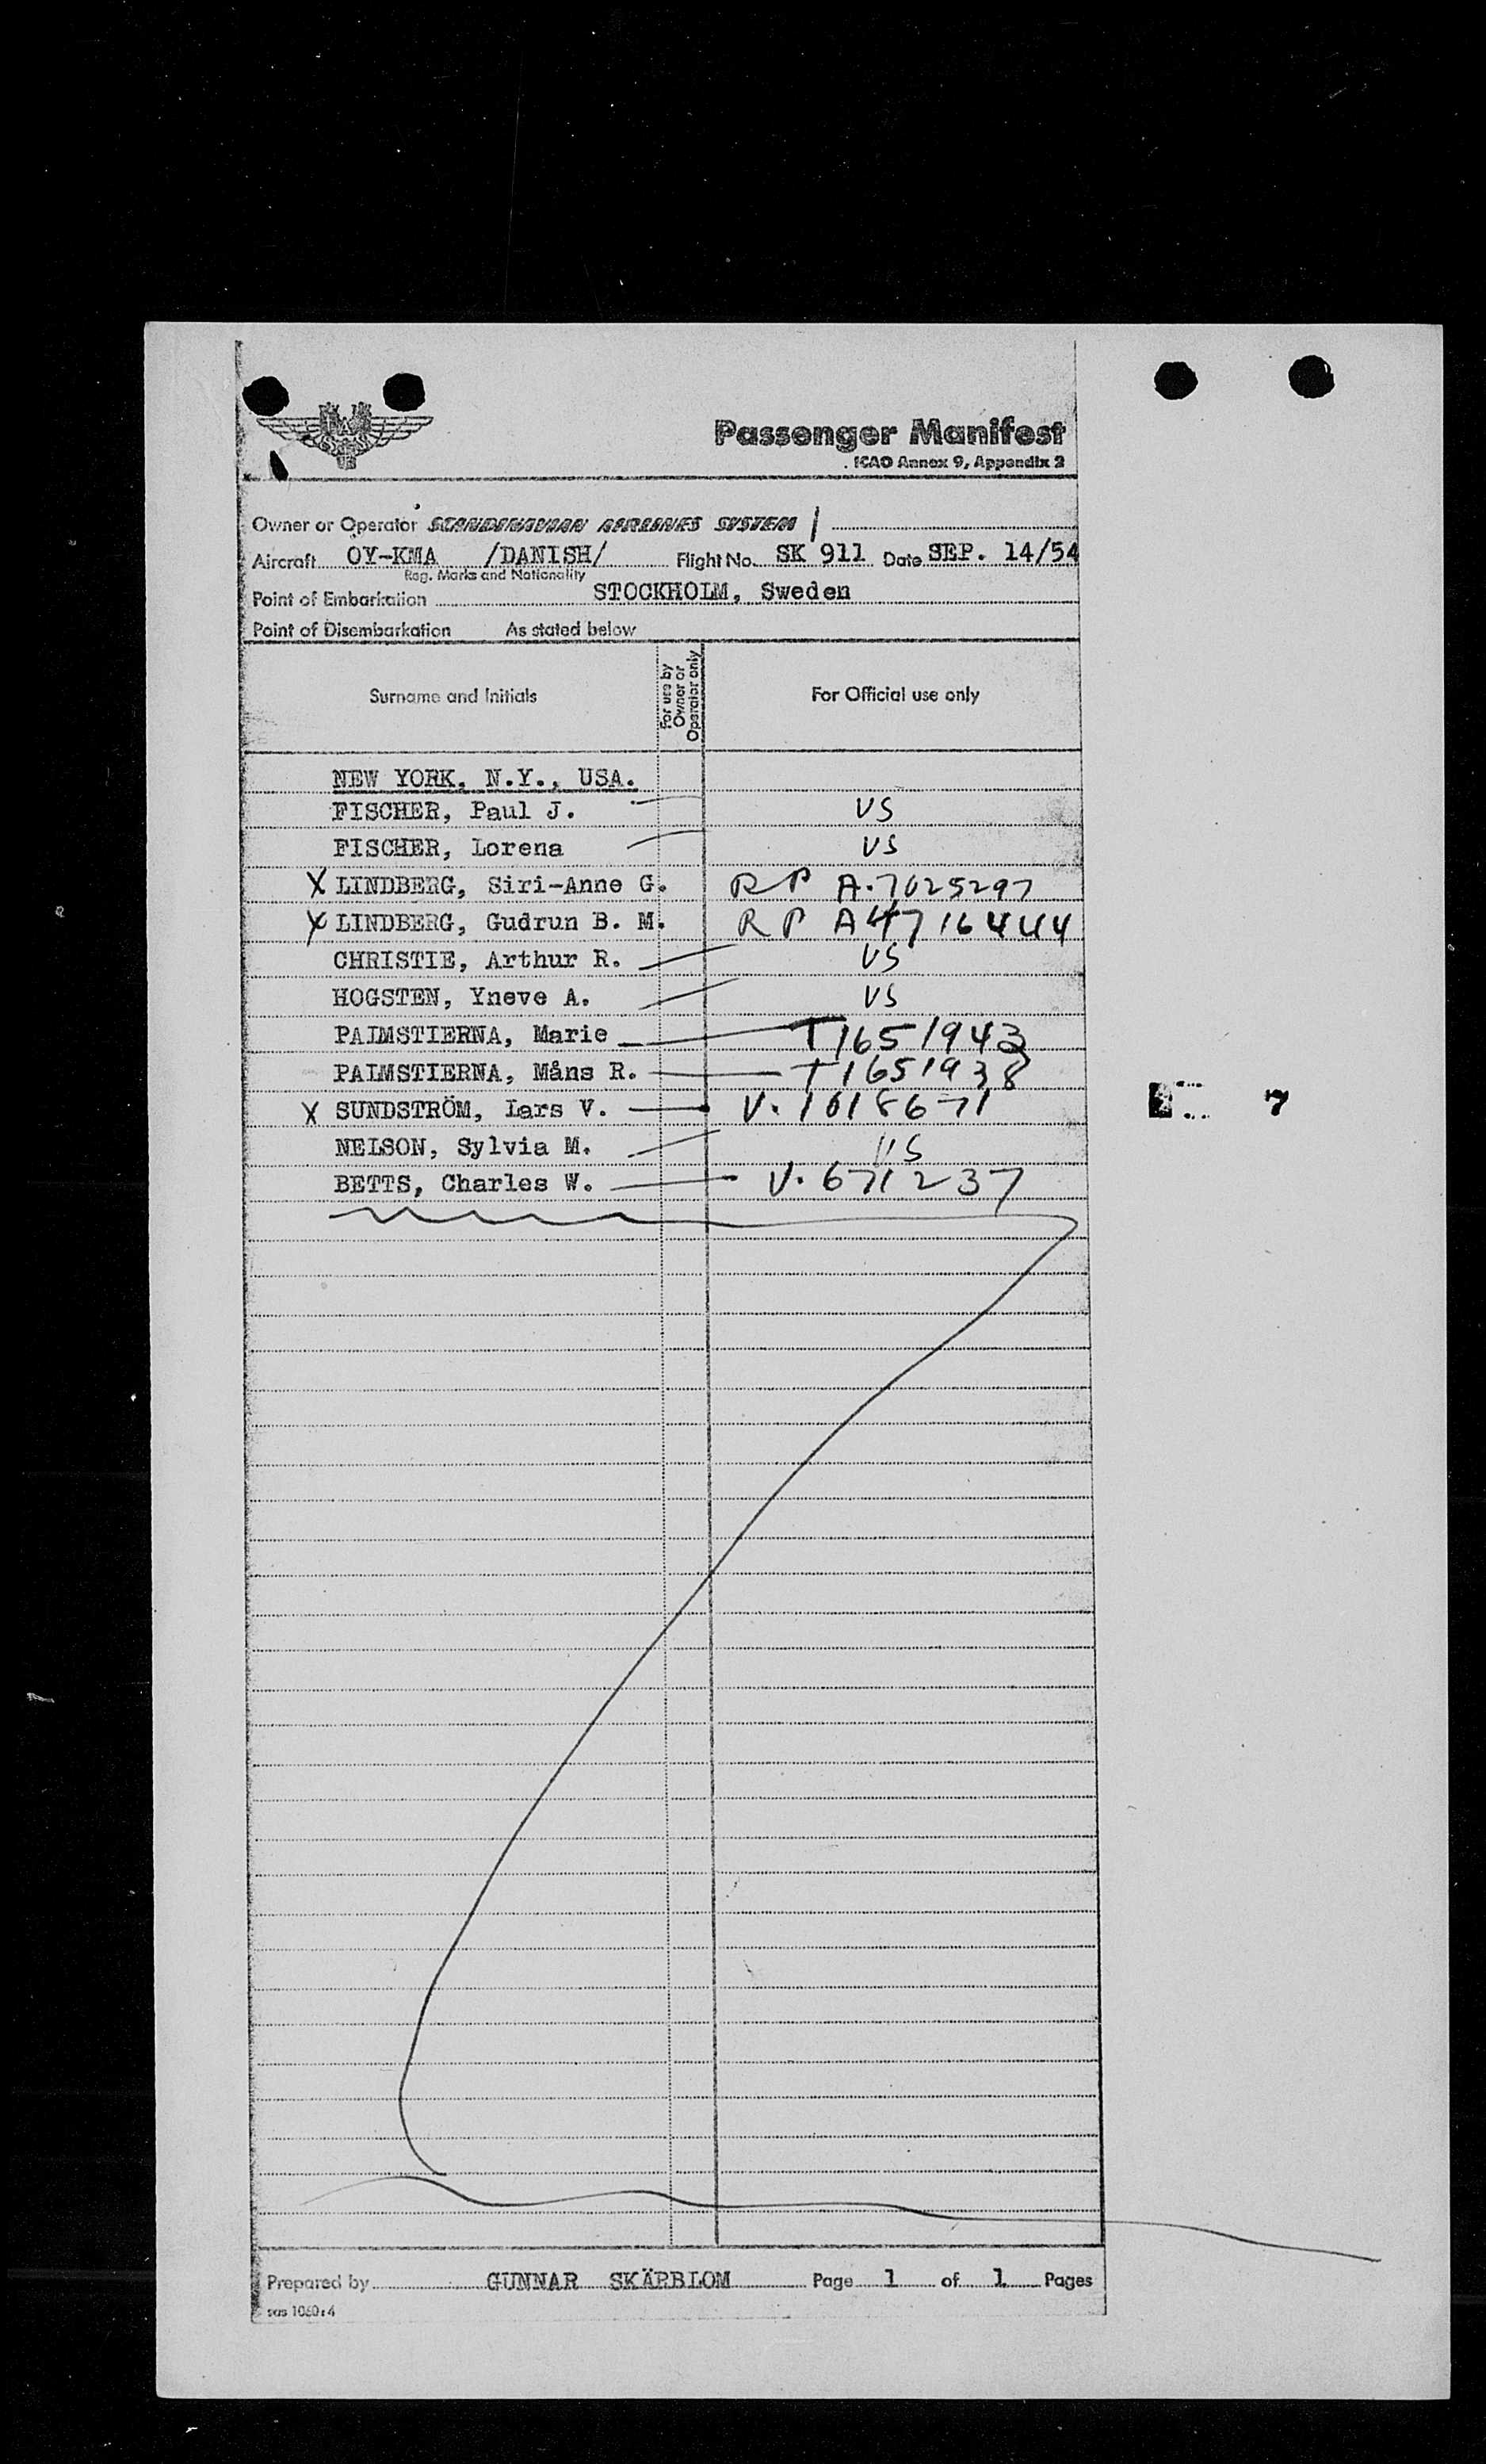 SAS
Passenger Manifest
ICAO Annex 9, Appendix 2
Owner or Operator SCANDINAVIAN AIRLINES SYSTEM
Aircraft OY-KMA /DANISH/ Flight No. SK 911 Date SEP. 14/54
Reg. Marks and Nationality
Point of Embarkation STOCKHOLM, Sweden
Point of Disembarkation As stated below
Surname and Initials For use by Owner or Operator only For Official use only
NEW YORK, N.Y., USA.
FISCHER, Paul J. US
FISCHER, Lorena US
X LINDBERG, Siri-Anne G. RP A.7025297
X LINDBERG, Gudrun B. M. RP A4716444
CHRISTIE, Arthur R. US
HOGSTEN, Yneve A. US
PALMSTIERNA, Marie T1651943
PALMSTIERNA, Måns R. T1651938
X SUNDSTRÖM, Lars V. V. 1018671
NELSON, Sylvia M. US
BETTS, Charles W. V. 671237
7
Prepared by GUNNAR SKÄRBLOM Page 1 of 1 Pages
sas 1060:4